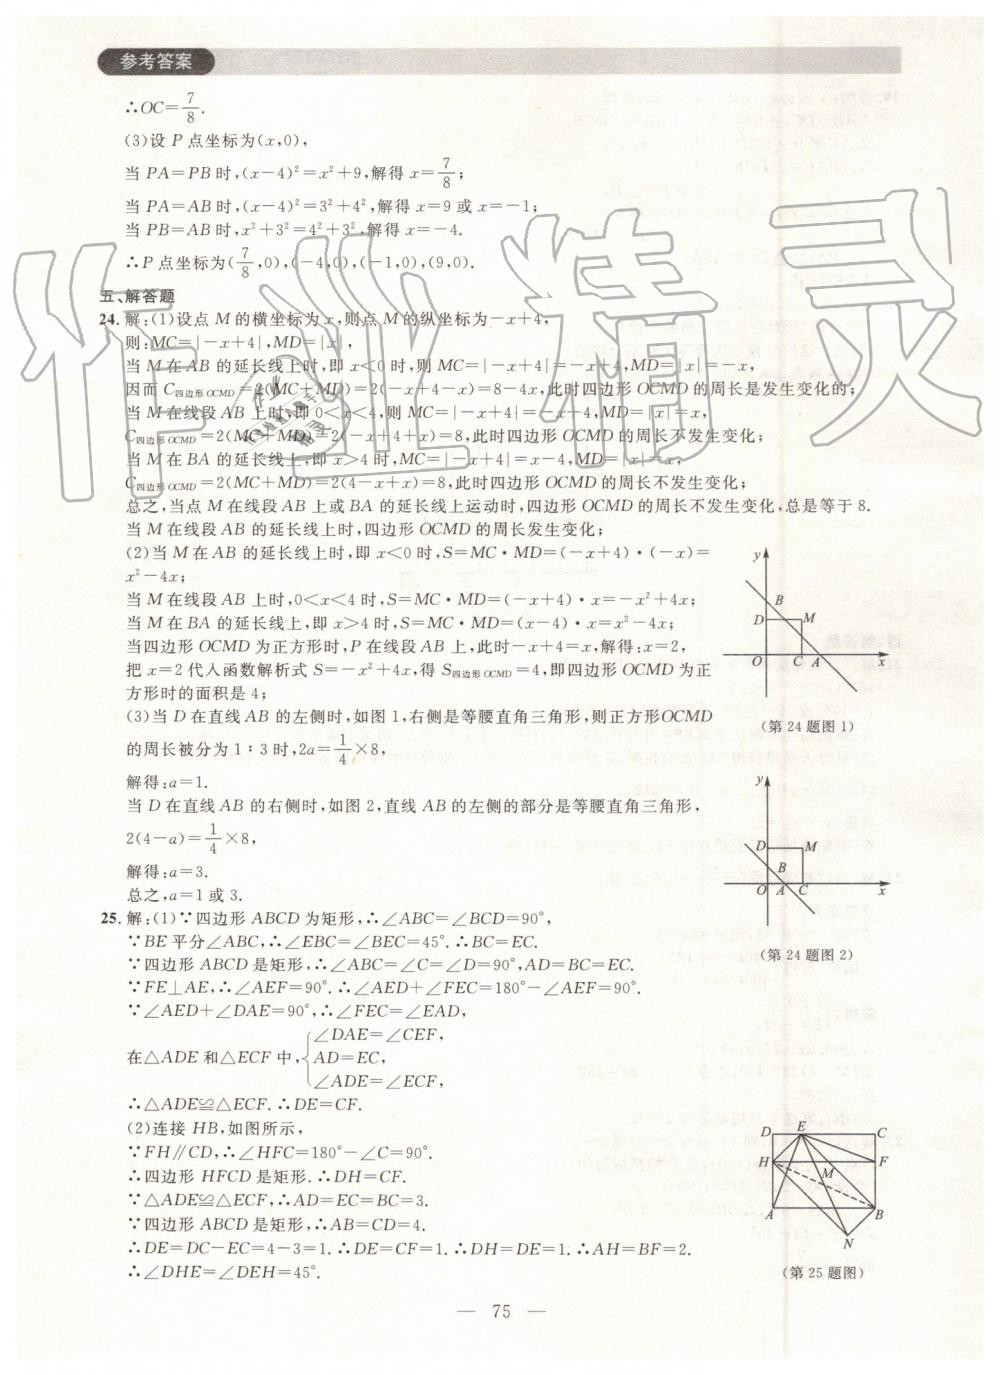 参考答案
∴OC=7/8.
(3)设 P 点坐标为(x,0),
当 PA=PB 时,(x−4)²=x²+9,解得 x=7/8;
当 PA=AB 时,(x−4)²=3²+4²,解得 x=9 或 x=−1;
当 PB=AB 时,x²+3²=4²+3²,解得 x=−4.
∴P 点坐标为(7/8,0),(−4,0),(−1,0),(9,0).
五、解答题
24. 解:(1)设点 M 的横坐标为 x,则点 M 的纵坐标为−x+4,
则:MC=|−x+4|,MD=|x|,
当 M 在 AB 的延长线上时,即 x<0 时,则 MC=|−x+4|=−x+4,MD=|x|=−x,
因而 C四边形OCMD=2(MC+MD)=2(−x+4−x)=8−4x,此时四边形 OCMD 的周长是发生变化的;
当 M 在线段 AB 上时,即 0<x<4,则 MC=|−x+4|=−x+4,MD=|x|=x,
C四边形OCMD=2(MC+MD)=2(−x+4+x)=8,此时四边形 OCMD 的周长不发生变化;
当 M 在 BA 的延长线上时,即 x>4 时,MC=|−x+4|=x−4,MD=|x|=x,
C四边形OCMD=2(MC+MD)=2(4−x+x)=8,此时四边形 OCMD 的周长不发生变化;
总之,当点 M 在线段 AB 上或 BA 的延长线上运动时,四边形 OCMD 的周长不发生变化,总是等于 8.
当 M 在线段 AB 的延长线上时,四边形 OCMD 的周长发生变化;
(2)当 M 在 AB 的延长线上时,即 x<0 时,S=MC·MD=(−x+4)·(−x)=
x²−4x;
当 M 在线段 AB 上时,0<x<4 时,S=MC·MD=(−x+4)·x=−x²+4x;
当 M 在 BA 的延长线上时,即 x>4 时,S=MC·MD=(x−4)·x=x²−4x;
当四边形 OCMD 为正方形时,P 在线段 AB 上,此时−x+4=x,解得:x=2,
把 x=2 代入函数解析式 S=−x²+4x,得 S四边形OCMD=4,即四边形 OCMD 为正
方形时的面积是 4;
(3)当 D 在直线 AB 的左侧时,如图 1,右侧是等腰直角三角形,则正方形OCMD
的周长被分为 1∶3 时,2a=1/4×8,
解得:a=1.
当 D 在直线 AB 的右侧时,如图 2,直线 AB 的左侧的部分是等腰直角三角形,
2(4−a)=1/4×8,
解得:a=3.
总之,a=1 或 3.
y
B
D
M
O
C
A
x
(第 24 题图 1)
y
D
M
B
O
A
C
x
(第 24 题图 2)
25. 解:(1)∵四边形 ABCD 为矩形,∴∠ABC=∠BCD=90°,
∵BE 平分∠ABC,∴∠EBC=∠BEC=45°.∴BC=EC.
∵四边形 ABCD 是矩形,∴∠ABC=∠C=∠D=90°,AD=BC=EC.
∵FE⊥AE,∴∠AEF=90°.∴∠AED+∠FEC=180°−∠AEF=90°.
∵∠AED+∠DAE=90°,∴∠FEC=∠EAD,
∠DAE=∠CEF,
在△ADE 和△ECF 中,AD=EC,
∠ADE=∠ECF,
∴△ADE≌△ECF.∴DE=CF.
(2)连接 HB,如图所示,
∵FH∥CD,∴∠HFC=180°−∠C=90°.
∴四边形 HFCD 是矩形.∴DH=CF.
∵△ADE≌△ECF,∴AD=EC=BC=3.
∵四边形 ABCD 是矩形,∴AB=CD=4.
∴DE=DC−EC=4−3=1.∴DE=CF=1.∴DH=DE=1.∴AH=BF=2.
∴∠DHE=∠DEH=45°.
D
E
C
H
F
M
A
B
N
(第 25 题图)
— 75 —
作业精灵